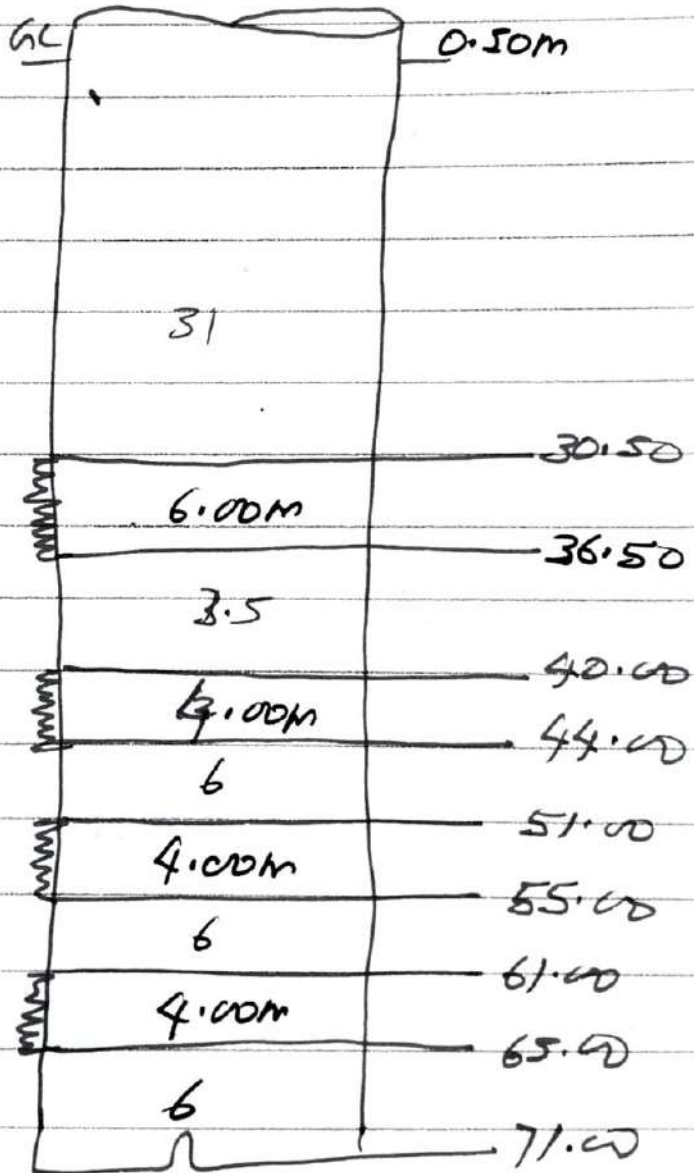 GL 0.50m
31
30.50
6.00m
36.50
3.5
40.00
4.00m
44.00
6
51.00
4.00m
55.00
6
61.00
4.00m
65.00
6
71.00